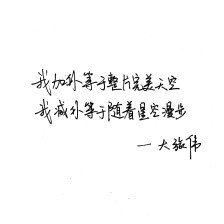 我加你等于整片完美天空
我减你等于随着星空漫步
一大张伟